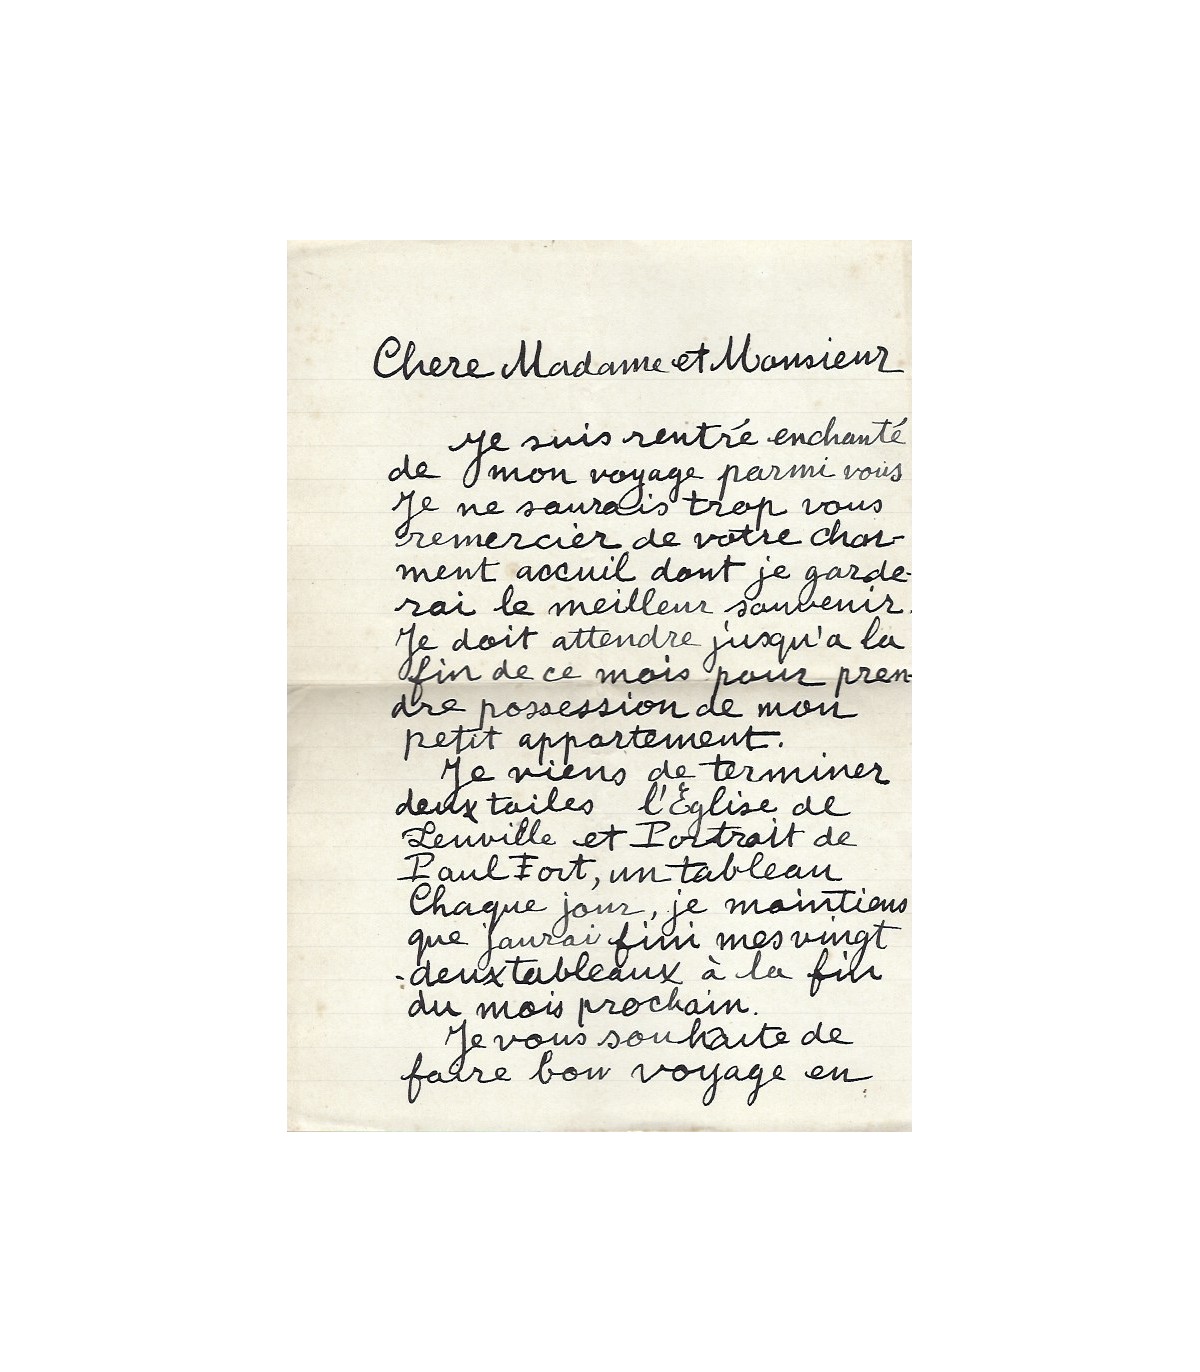 Chere Madame et Monsieur
Je suis rentré enchanté
de mon voyage parmi vous
Je ne saurais trop vous
remercier de votre char-
ment accuil dont je garde-
rai le meilleur souvenir.
Je doit attendre jusqu'a la
fin de ce mois pour pren-
dre possession de mon
petit appartement.
Je viens de terminer
deux toiles l'Église de
Leuville et Portrait de
Paul Fort, un tableau
Chaque jour, je maintiens
que j'aurai fini mes vingt
deux tableaux à la fin
du mois prochain.
Je vous souhaite de
faire bon voyage en